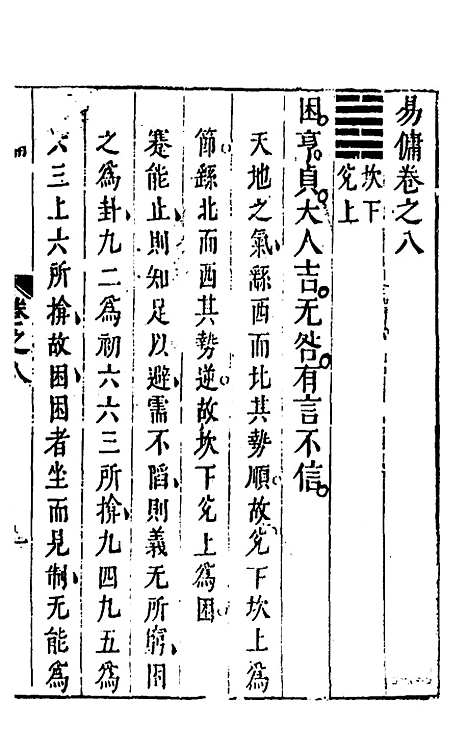 易傭卷之八
坎下
兌上
困亨貞大人吉无咎有言不信
天地之氣繇西而北其勢順故兌下坎上爲
節繇北而西其勢逆故坎下兌上爲困
蹇能止則知足以避需不陷則義无所窮困
之爲卦九二爲初六六三所揜九四九五爲
六三上六所揜故困困者坐而見制无能爲
卷之八